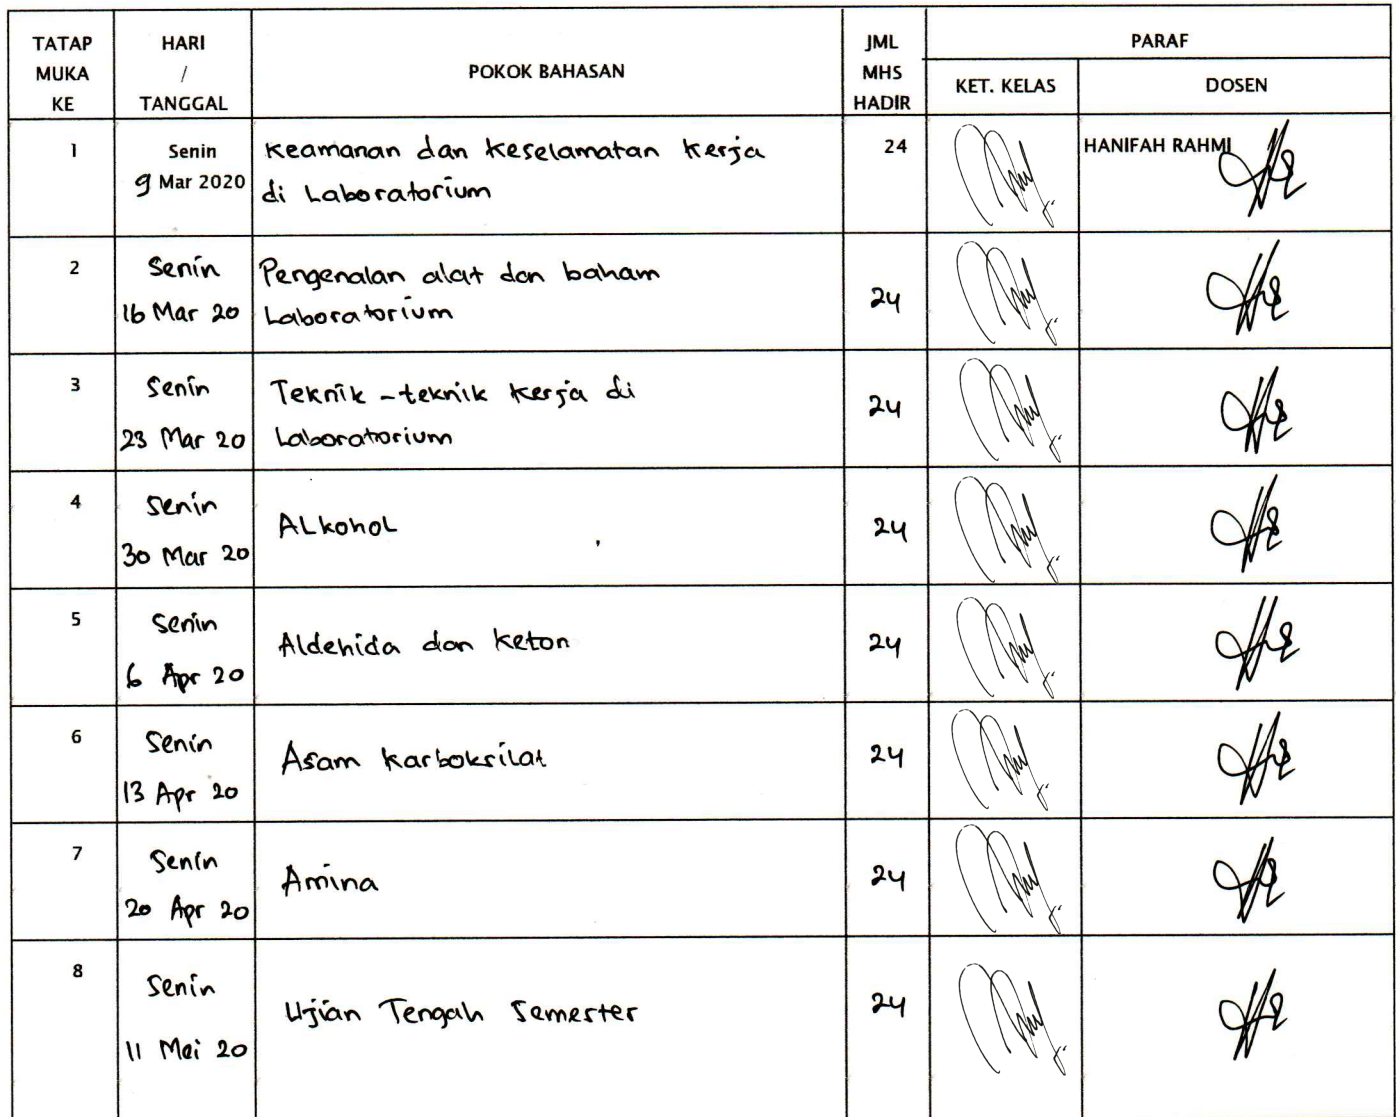 TATAP
MUKA
KE
HARI
/
TANGGAL
POKOK BAHASAN
JML
MHS
HADIR
PARAF
KET. KELAS
DOSEN
1
Senin
9 Mar 2020
Keamanan dan Keselamatan Kerja
di Laboratorium
24
HANIFAH RAHMI
2
Senin
16 Mar 20
Pengenalan alat dan baham
Laboratorium
24
3
Senin
23 Mar 20
Teknik-teknik Kerja di
Laboratorium
24
4
Senin
30 Mar 20
ALkohoL
24
5
Senin
6 Apr 20
Aldehida dan Keton
24
6
Senin
13 Apr 20
Asam Karboksilat
24
7
Senin
20 Apr 20
Amina
24
8
Senin
11 Mei 20
Ujian Tengah Semester
24